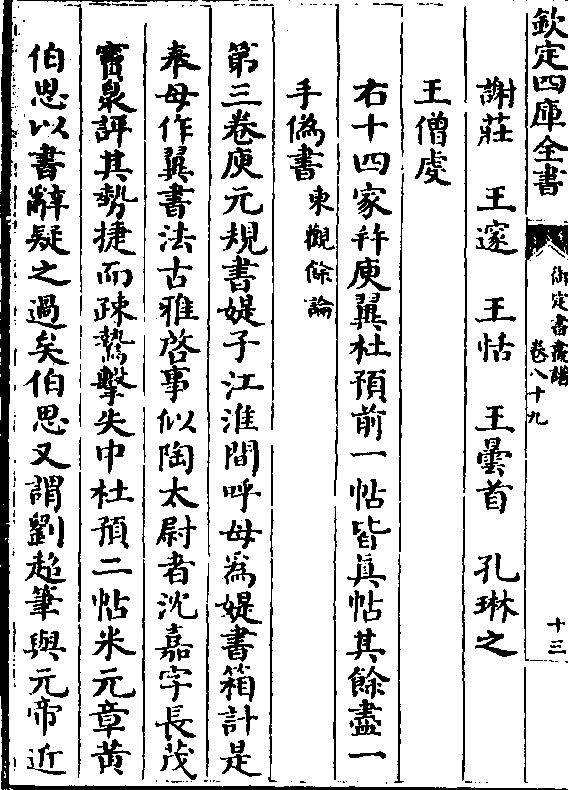 欽定四庫全書
御定書畫譜
卷八十九
十三
謝莊　王邃　王恬　王曇首　孔琳之
王僧虔
右十四家幷庾翼杜預前一帖皆眞帖其餘盡一
手僞書東觀餘論
第三卷庾元規書媞子江淮間呼母爲媞書箱計是
奉母作翼書法古雅啓事似陶太尉者沈嘉字長茂
竇臮評其勢捷而疎鷙擊失中杜預二帖米元章黃
伯思以書辭疑之過矣伯思又謂劉超筆與元帝近